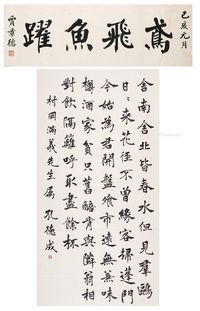 己亥元月
鳶飛魚躍
賈景德
舍南舍北皆春水但見羣鷗
日〻来花徑不曾緣客掃蓬門
今始為君開盤飧市遠無兼味
樽酒家貧只舊醅肯與鄰翁相
對飲隔籬呼取盡餘杯
村岡滿義先生屬 孔德成